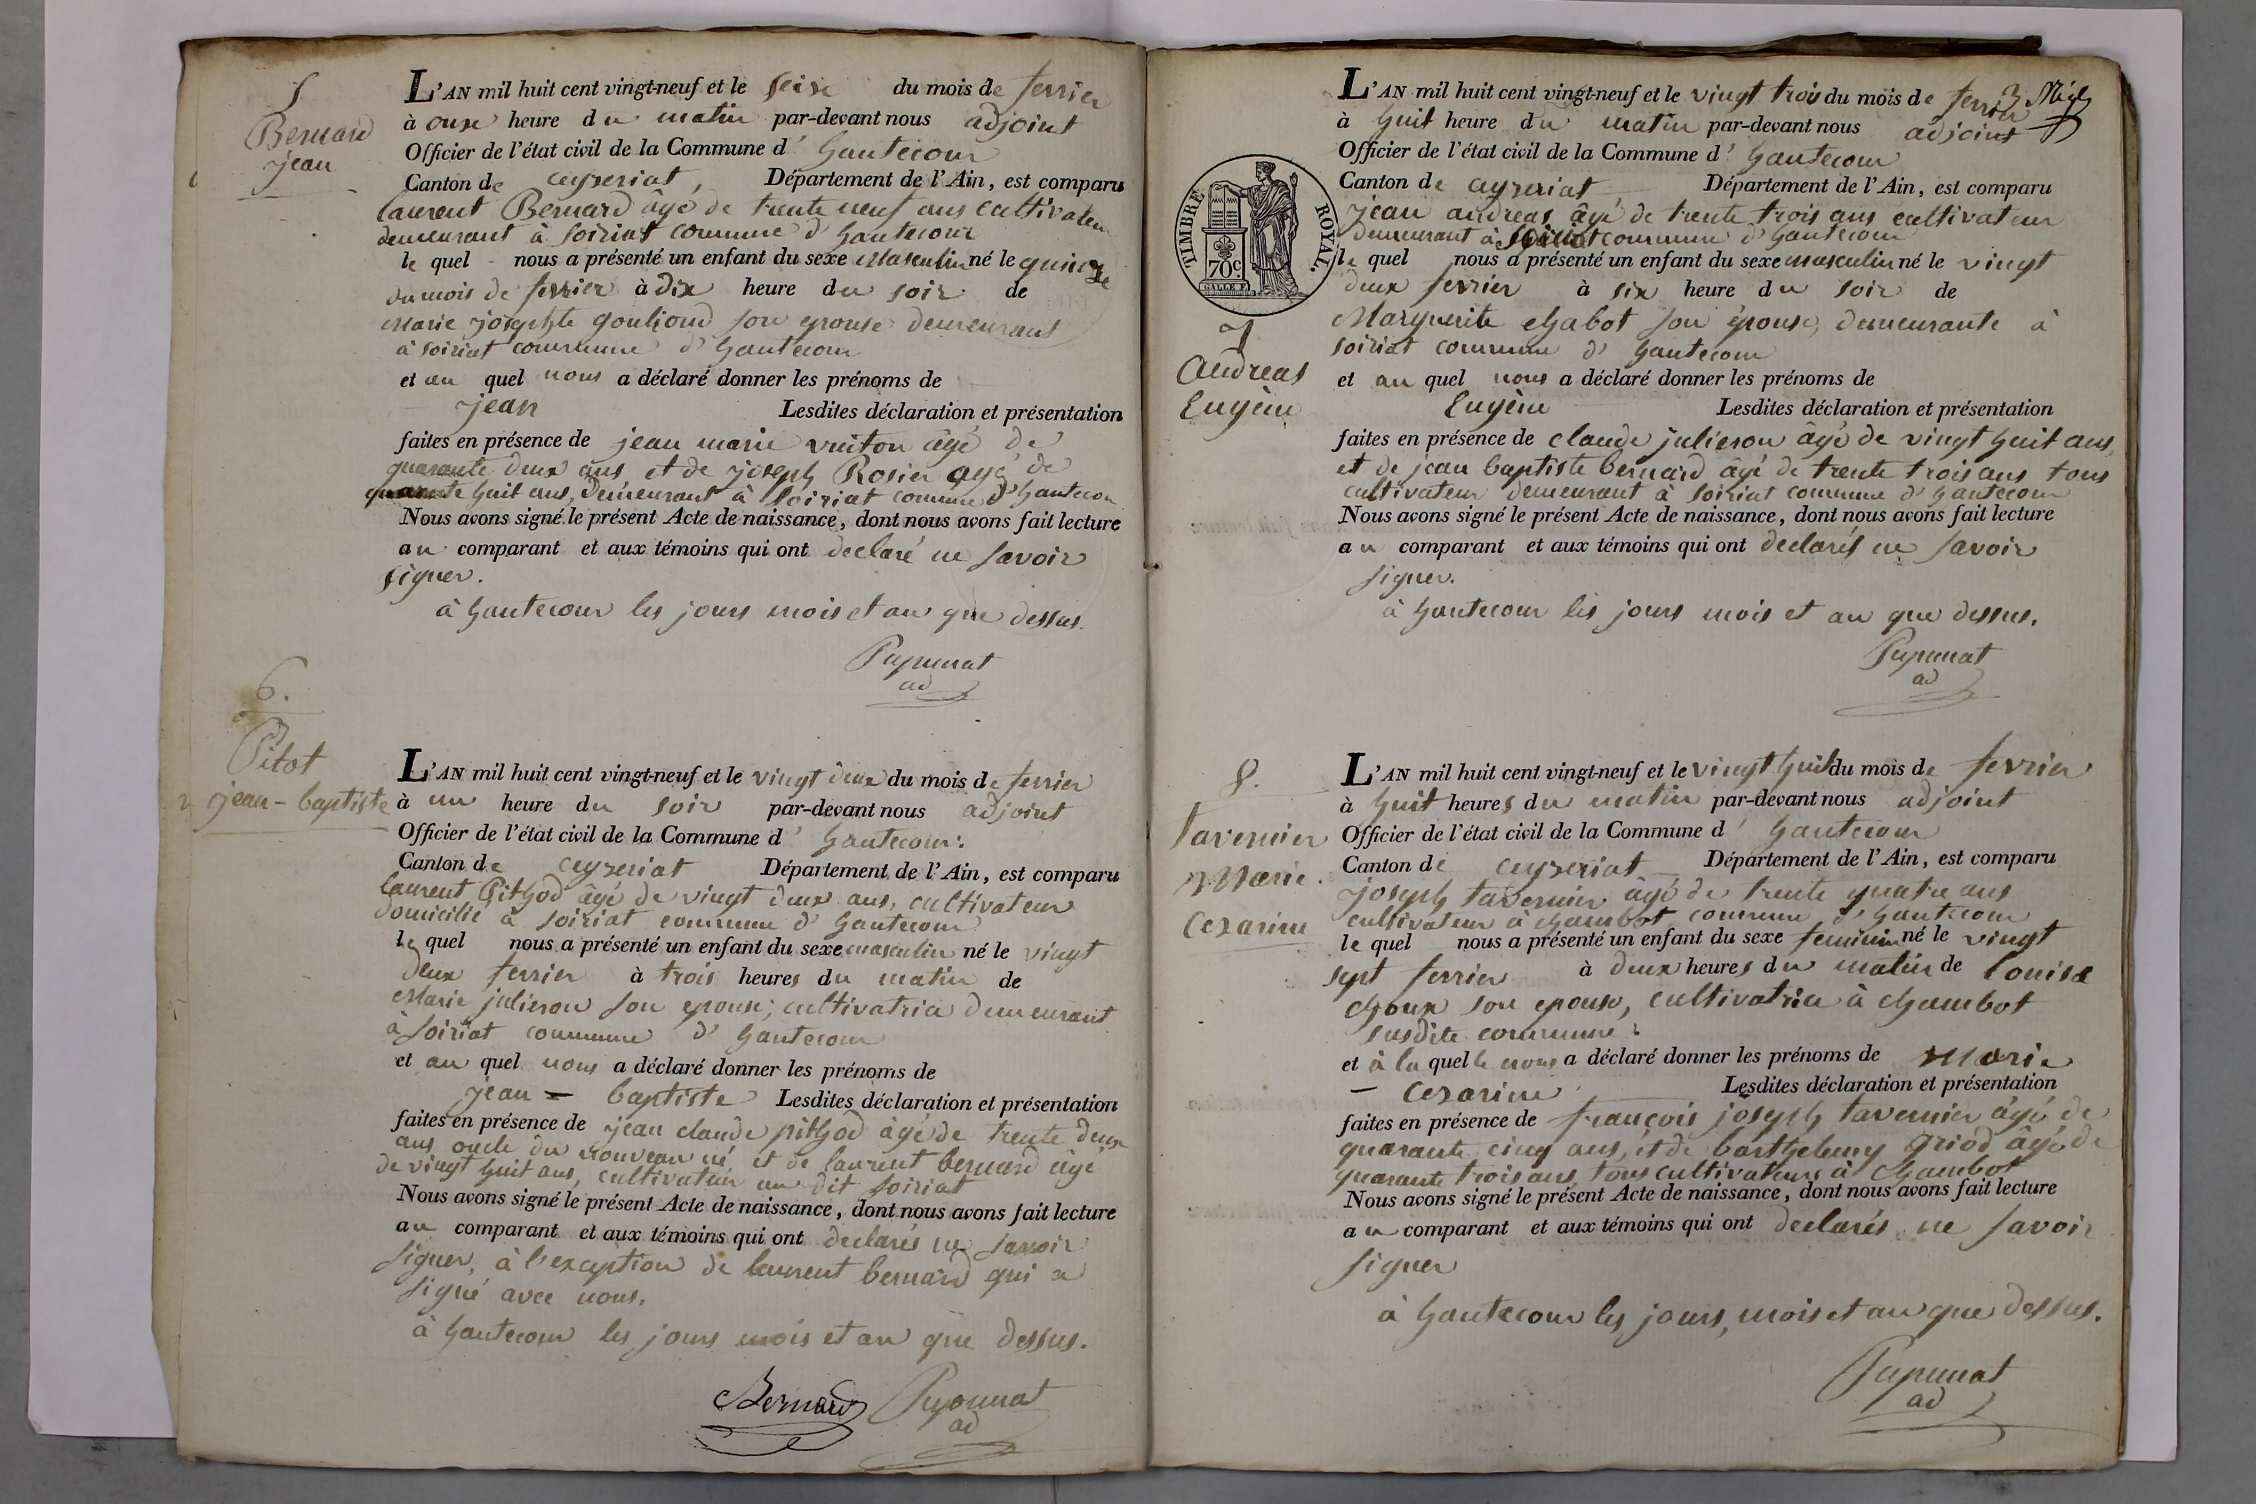 5
Bernard
jean
L'AN mil huit cent vingt-neuf et le seize du mois de fevrier
à onze heure du matin par-devant nous adjoint
Officier de l'état civil de la Commune d' hautecour
Canton de ceyzeriat, Département de l'Ain, est comparu
laurent Bernard âgé de trente neuf ans cultivateur
demeurant à soiriat commune d'hautecour
le quel nous a présenté un enfant du sexe Masculin né le quinze
du mois de fevrier à dix heure du soir de
Marie josephte son epouse demeurant
à soiriat commune d'hautecour
et au quel nous a déclaré donner les prénoms de
jean Lesdites déclaration et présentation
faites en présence de jean marie vuiton âgé de
quarante deux ans et de joseph Rosier agé de
quarante huit ans, demeurant à soiriat commune d'hautecour
Nous avons signé le présent Acte de naissance, dont nous avons fait lecture
au comparant et aux témoins qui ont declaré ne savoir
signer.
à hautecour les jours mois et an que dessus.
Papunat
ad
6.
Pitot
jean-baptiste
L'AN mil huit cent vingt-neuf et le vingt deux du mois de fevrier
à un heure du soir par-devant nous adjoint
Officier de l'état civil de la Commune d' hautecour.
Canton de ceyzeriat Département de l'Ain, est comparu
laurent Pithod âgé de vingt deux ans, cultivateur
domicilié à soiriat commune d'hautecour
le quel nous a présenté un enfant du sexe masculin né le vingt
deux fevrier à trois heures du matin de
Marie julieron son epouse, cultivatrice demeurant
à soiriat commune d'hautecour
et au quel nous a déclaré donner les prénoms de
jean - baptiste Lesdites déclaration et présentation
faites en présence de jean claude pithod âgé de trente deux
ans, oncle du nouveau né et de laurent bernard âgé
de vingt huit ans, cultivateur au dit soiriat
Nous avons signé le présent Acte de naissance, dont nous avons fait lecture
au comparant et aux témoins qui ont declarés ne savoir
signer, à l'exception de laurent bernard qui a
signé avec nous.
à hautecour les jours mois et an que dessus.
Bernard Papunat
ad
3
TIMBRE ROYAL.
70c.
7
Andreas
Eugène
L'AN mil huit cent vingt-neuf et le vingt trois du mois de fevrier
à huit heure du matin par-devant nous adjoint
Officier de l'état civil de la Commune d' hautecour
Canton de ceyzeriat Département de l'Ain, est comparu
jean andreas âgé de trente trois ans cultivateur
demeurant à soiriat commune d'hautecour
le quel nous a présenté un enfant du sexe masculin né le vingt
deux fevrier à six heure du soir de
Marguerite chabot son épouse, demeurante à
soiriat commune d'hautecour
et au quel nous a déclaré donner les prénoms de
Eugène Lesdites déclaration et présentation
faites en présence de claude julieron âgé de vingt huit ans,
et de jean baptiste bernard âgé de trente trois ans tous
cultivateur demeurant à soiriat commune d'hautecour
Nous avons signé le présent Acte de naissance, dont nous avons fait lecture
au comparant et aux témoins qui ont declarés ne savoir
signer.
à hautecour les jours mois et an que dessus.
Papunat
ad
8.
tavernier
Marie
Cezarine
L'AN mil huit cent vingt-neuf et le vingt huit du mois de fevrier
à huit heures du matin par-devant nous adjoint
Officier de l'état civil de la Commune d' hautecour
Canton de ceyzeriat Département de l'Ain, est comparu
joseph tavernier âgé de trente quatre ans
cultivateur à chambot commune d'hautecour
le quel nous a présenté un enfant du sexe feminin né le vingt
sept fevrier à deux heures du matin de louise
choux son epouse, cultivatrice à chambot
susdite commune.
et à la quelle nous a déclaré donner les prénoms de Marie
- cezarine Lesdites déclaration et présentation
faites en présence de françois joseph tavernier âgé de
quarante cinq ans, et de barthelemy griod âgé de
quarante trois ans, tous cultivateurs à chambot
Nous avons signé le présent Acte de naissance, dont nous avons fait lecture
au comparant et aux témoins qui ont declarés ne savoir
signer
à hautecour les jours, mois et an que dessus.
Papunat
ad